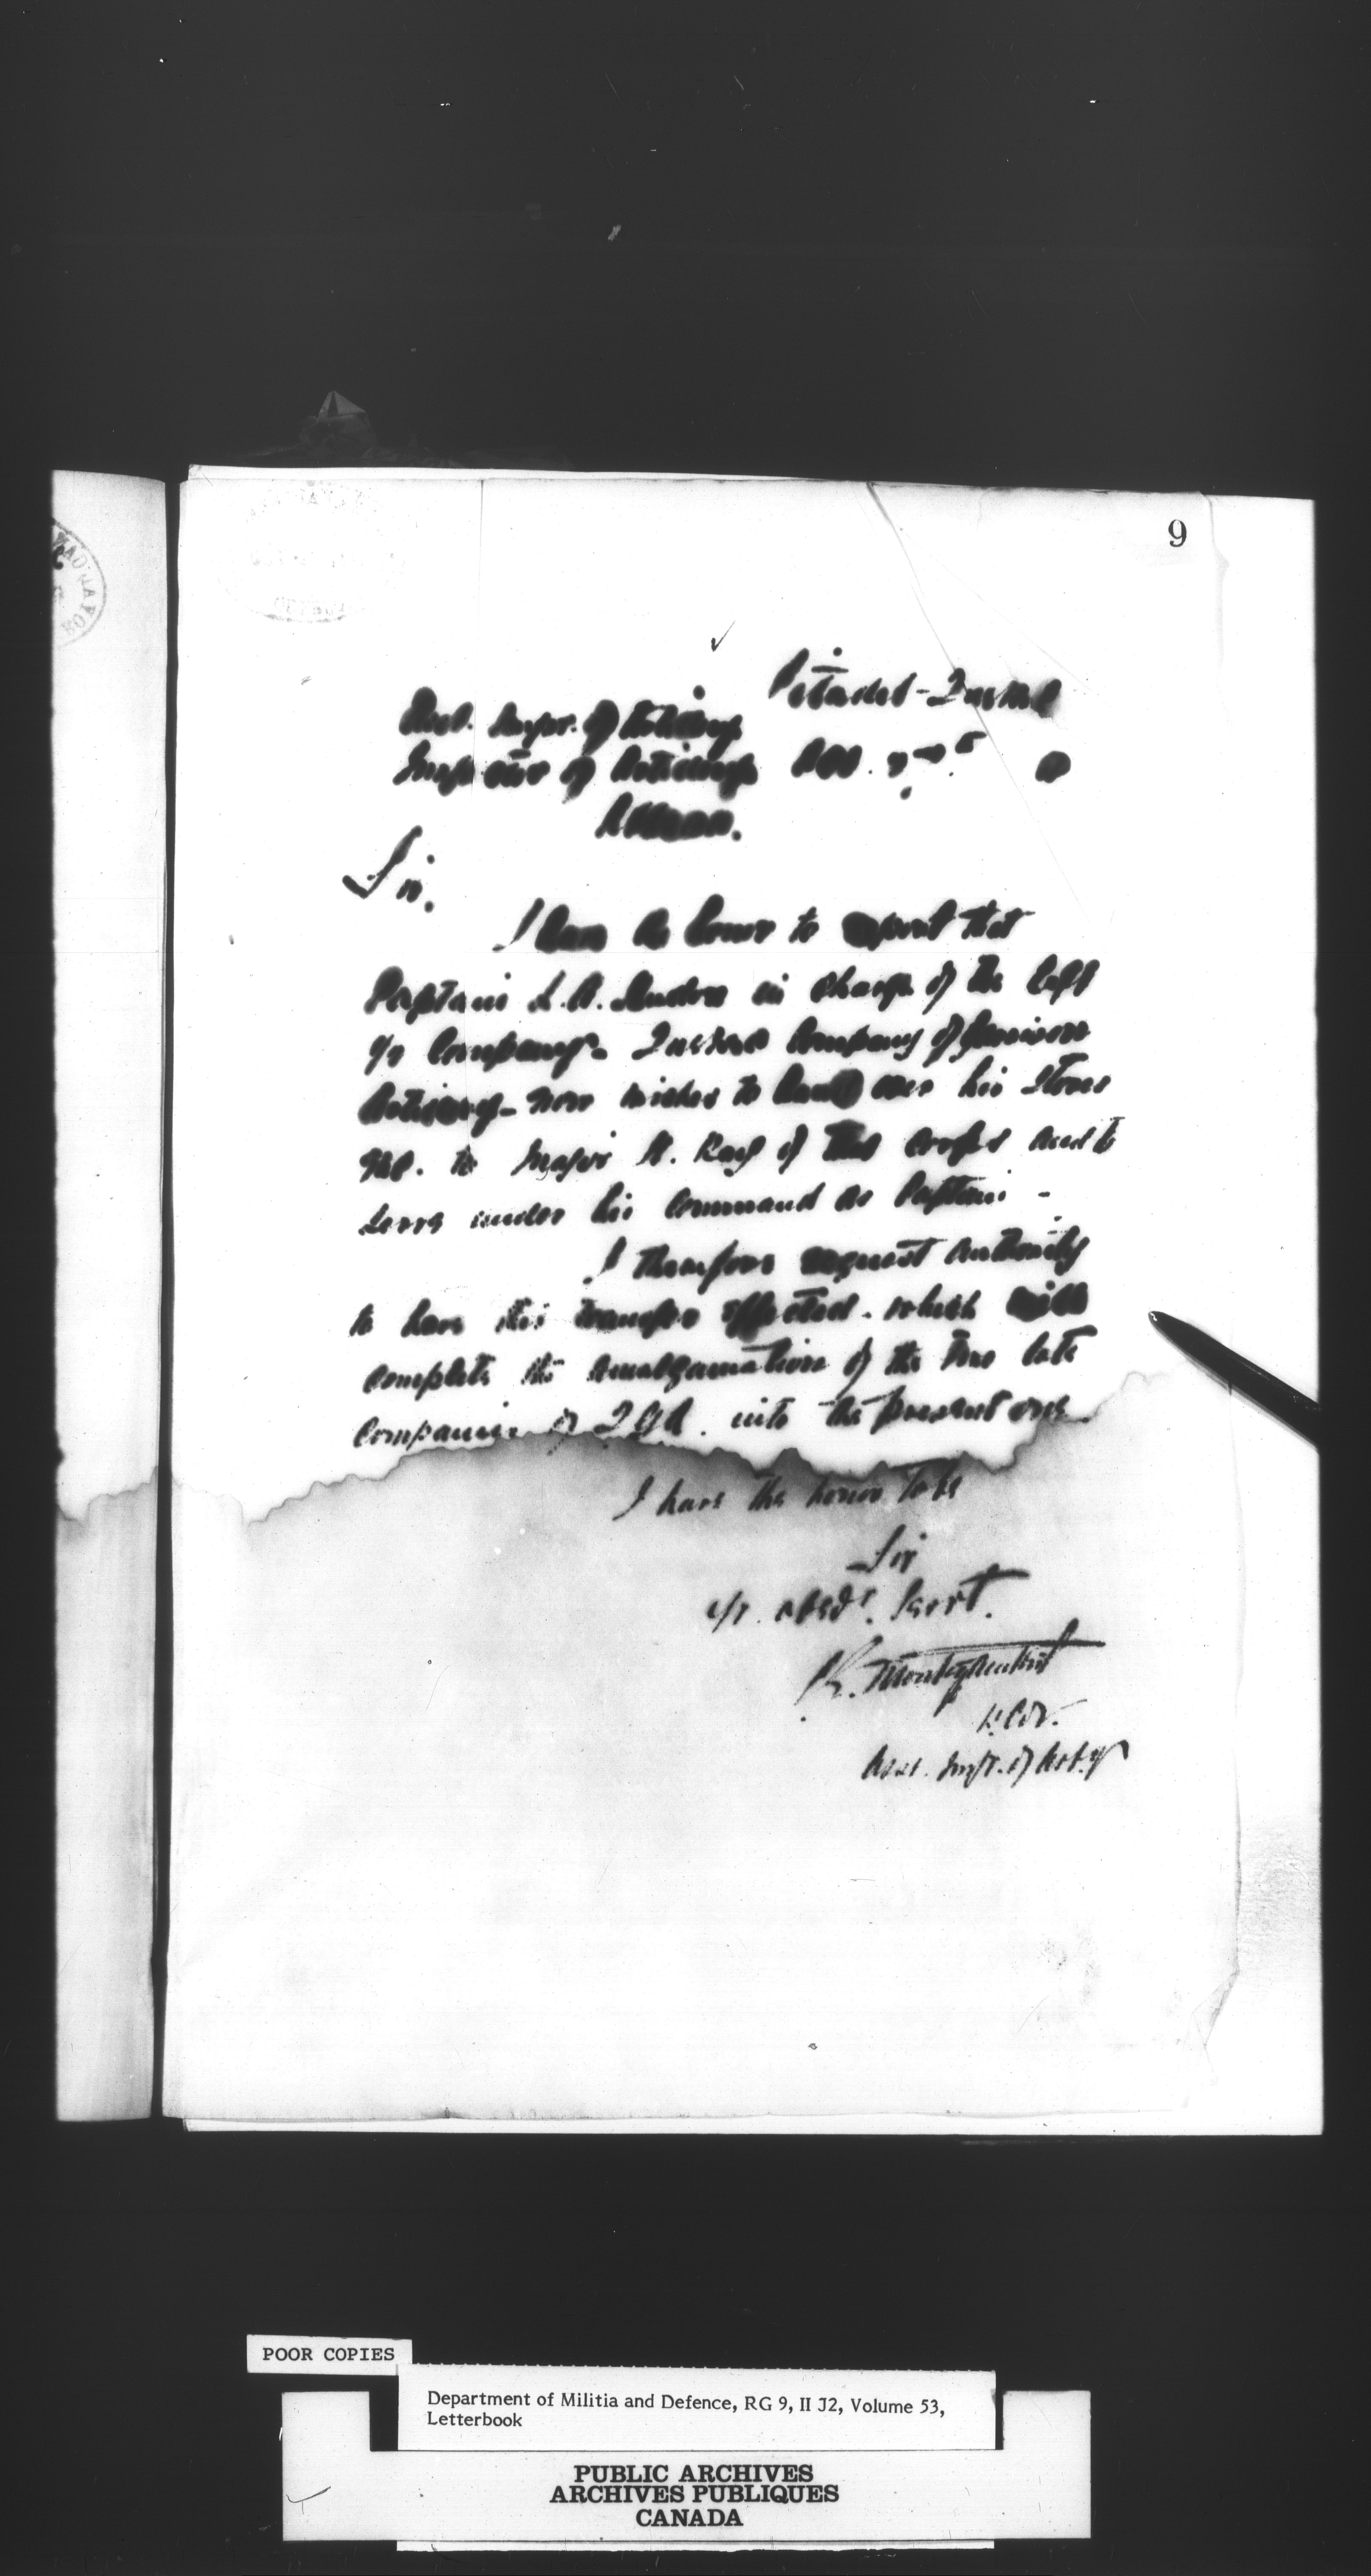 9
Citadel - Quebec
Inspector of Artillery
Ottawa.
Sir.
I have the honor to report that
Captain L. A. in charge of the left
1/2 Company - Quebec Company of Garrison
Artillery - now wishes to hand over his stores
&c. to Major H. Ray of that corps and to
serve under his command as Captain -
I therefore request authority
to have this transfer effected - which will
complete the amalgamation of the two late
companies of Q G A. into the present one
I have the honor to be
Sir
yr. obedt. Servt.
Asst. Inspr. of Arty
POOR COPIES
Department of Militia and Defence, RG 9, II J2, Volume 53,
Letterbook
PUBLIC ARCHIVES
ARCHIVES PUBLIQUES
CANADA